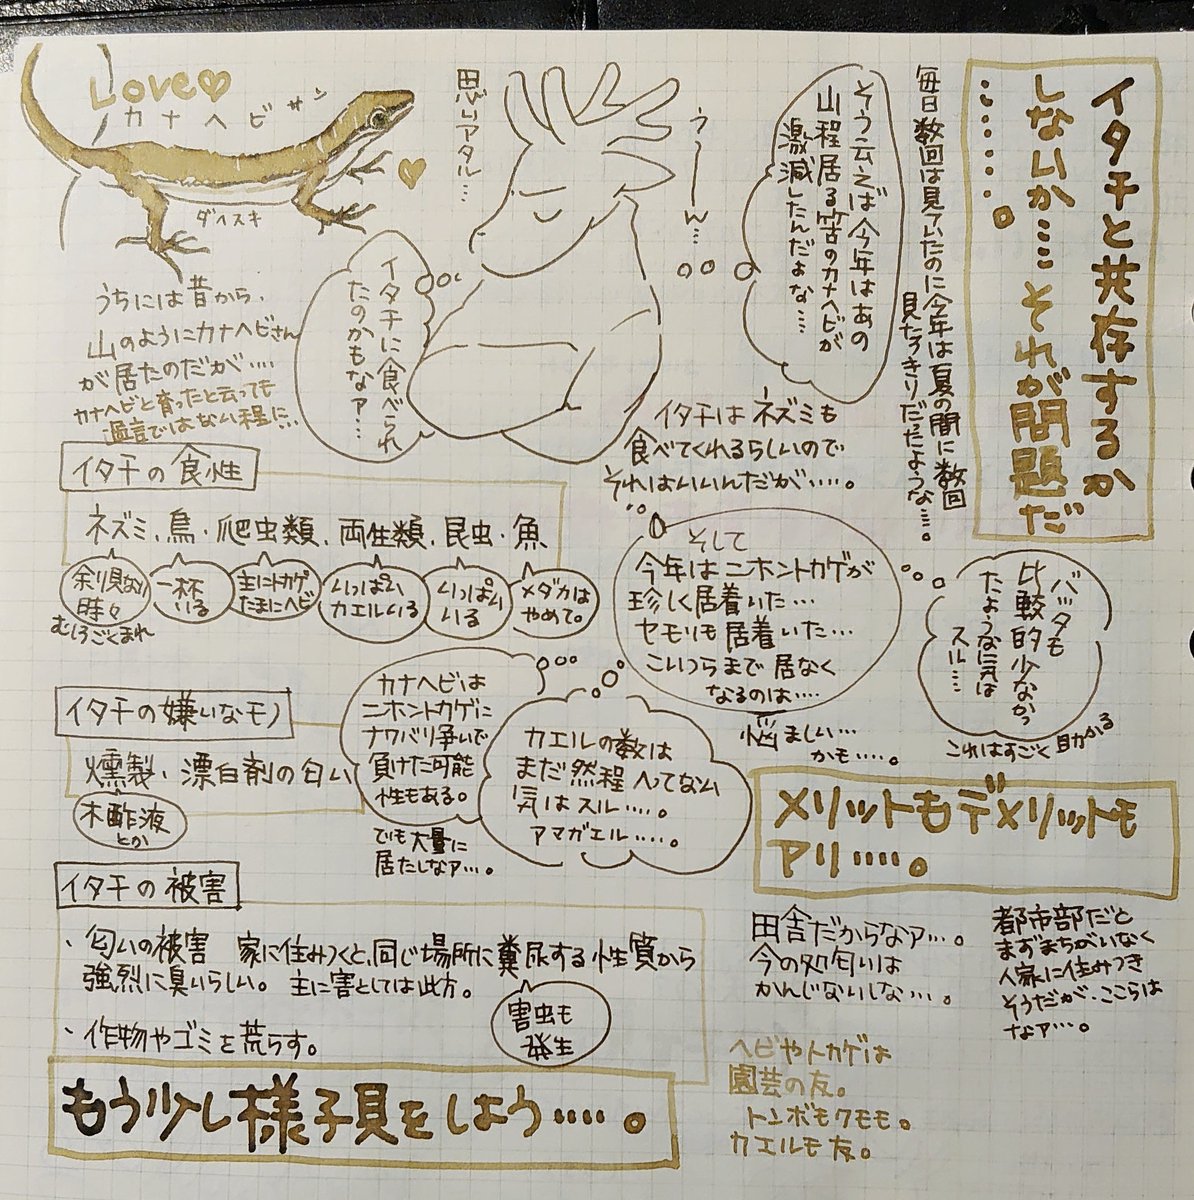 イタチと共存するか
しないか…それが問題だ
………。
毎日数回は見ていたのに今年は夏の間に数回
見たっきりだったような…。
そう云えば今年はあの
山程居る筈のカナヘビが
激減したんだよな…
うーん…
思いアタル…
Love♡
カナヘビサン
ダイスキ
うちには昔から、
山のようにカナヘビさん
が居たのだが…
カナヘビと育ったと云っても
過言ではない程に…
イタチに食べられ
たのかもなァ…
イタチはネズミも
食べてくれるらしいので
それはいいんだが…。
イタチの食性
ネズミ、鳥・爬虫類、両生類、昆虫・魚
余り見ない
時々
むしろごくまれ
一杯
いる
主にトカゲ
たまにヘビ
いっぱい
カエルいる
いっぱい
いる
メダカは
やめて。
そして
今年はニホントカゲが
珍しく居着いた…
ヤモリも居着いた…
こいつらまで居なく
なるのは…
悩ましい…
かも…。
バッタも
比較的少なかっ
たような気は
スル…
これはすごく助かる
イタチの嫌いなモノ
燻製・漂白剤の匂い
木酢液
とか
カナヘビは
ニホントカゲに
ナワバリ争いで
負けた可能
性もある。
でも大量に
居たしなァ…。
カエルの数は
まだ然程へってない
気はスル…。
アマガエル…。
メリットもデメリットモ
アリ…。
イタチの被害
・匂いの被害 家に住みつくと、同じ場所に糞尿する性質から
強烈に臭いらしい。主に害としては此方。
害虫も
発生
・作物やゴミを荒らす。
田舎だからなァ…。
今の処匂いは
かんじないしな…。
都市部だと
まずまちがいなく
人家に住みつき
そうだが、ここらは
なァ…。
ヘビやトカゲは
園芸の友。
トンボもクモも。
カエルモ友。
もう少し様子見をしよう…。